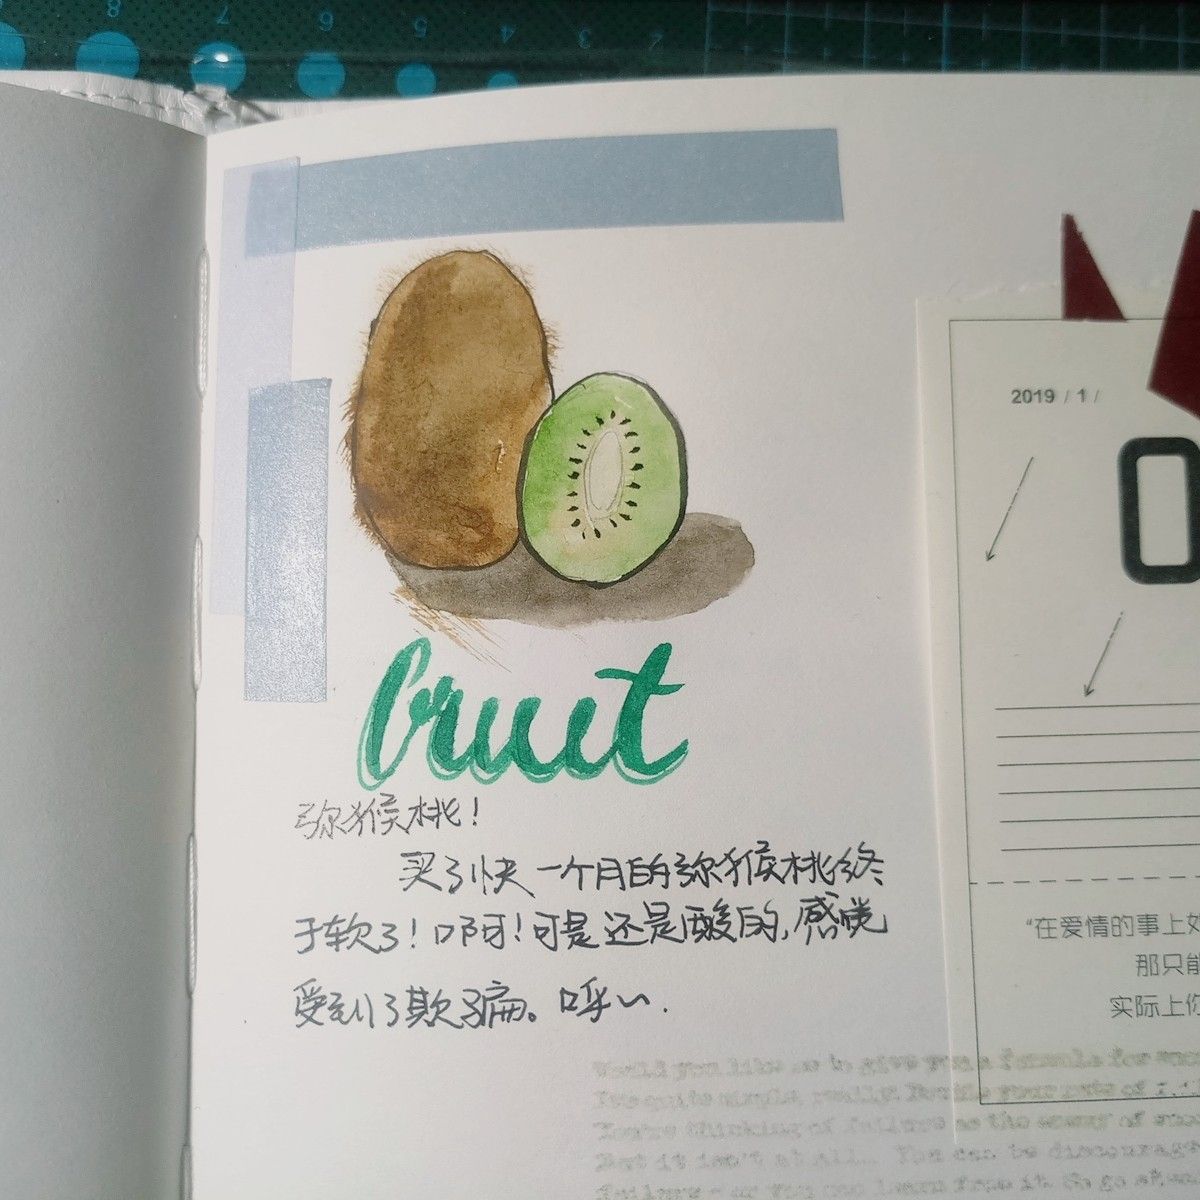 8 7 6 5 4 3 2
2019 / 1 /
O
fruit
弥猴桃！
买了快一个月的弥猴桃终
于软了！啊！可是还是酸的，感觉
受到了欺骗。呼~.
“在爱情的事上如
那只能
实际上你
Would you like me to give you a formula for suc
It's quite simple, really: Double your rate of f
You're thinking of failure as the enemy of succ
But it isn't at all... You can be discourag
failure - or you can learn from it. So go ahe